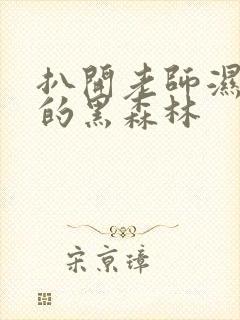 扒開老師濕
的黑森林
宋京璋